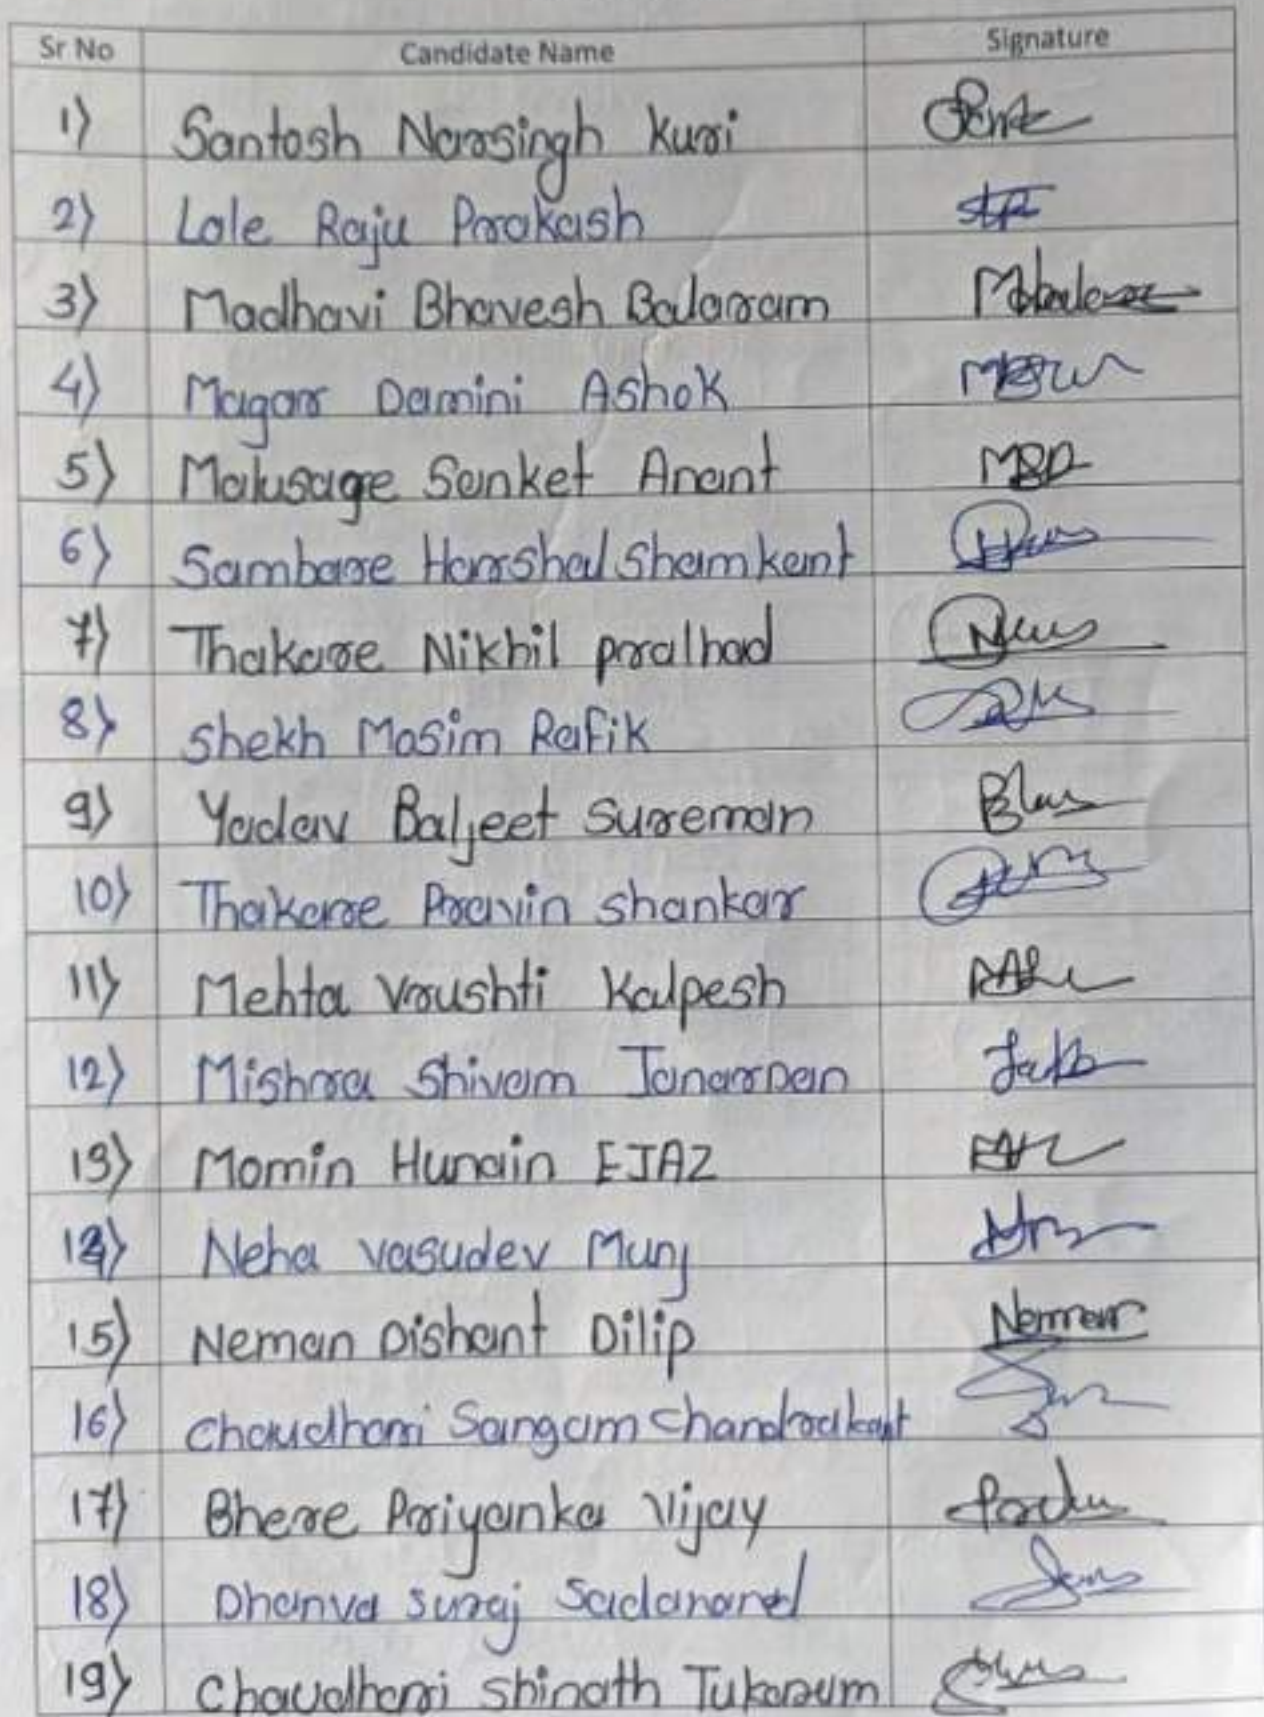 Sr No Candidate Name Signature
1) Santosh Narsingh Kuri
2) Lale Raju Prakash
3) Madhavi Bhavesh Balaram
4) Magar Damini Ashok
5) Malusage Sanket Anant MSA
6) Sambare Harshal Shamkant
7) Thakare Nikhil pralhad
8) Shekh Mosim Rafik
9) Yadav Baljeet Sureman
10) Thakare Pravin shankar
11) Mehta Vrushti Kalpesh
12) Mishra Shivam Janardan
13) Momin Hunain EJAZ
14) Neha vasudev Munj
15) Neman Dishant Dilip Neman
16) Chaudhari Sangam Chandrakant
17) Bhere Priyanka Vijay
18) Dhanva Suraj Sadanand
19) Chaudhari Shinath Tukaram